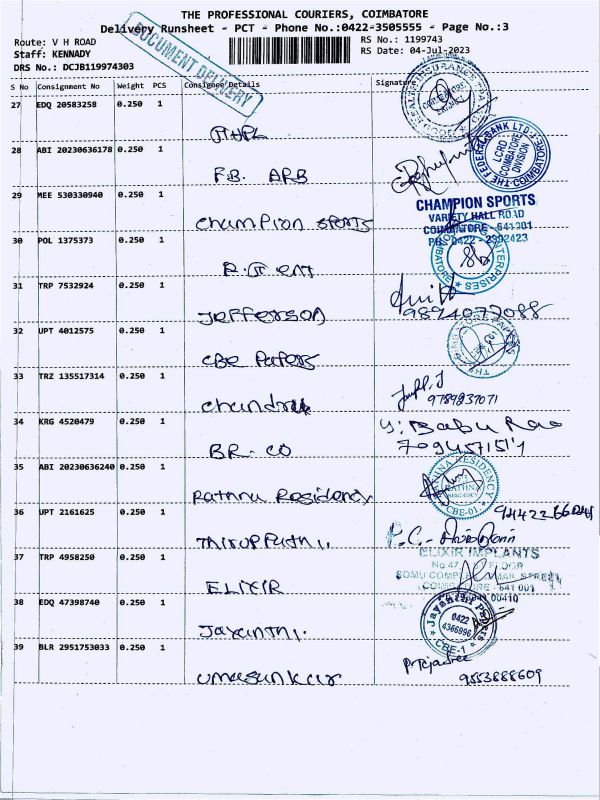 THE PROFESSIONAL COURIERS, COIMBATORE
Delivery Runsheet - PCT - Phone No.:0422-3505555 - Page No.:3
Route: V H ROAD
RS No.: 1199743
Staff: KENNADY
RS Date: 04-Jul-2023
DRS No.: DCJB119974303
DOCUMENT DELIVERY
S No Consignment No Weight PCS Consignee Details Signature
27 EDQ 20583258 0.250 1
28 ABI 20230636178 0.250 1
F.B. ARB
THE FEDERAL BANK LTD
LCRD COIMBATORE DIVISION
29 MEE 530330940 0.250 1
Champion SPORTS
CHAMPION SPORTS
VARIETY HALL ROAD
COIMBATORE - 641 001
PH: 0422 - 2392423
30 POL 1375373 0.250 1
ENTERPRISES
COIMBATORE
31 TRP 7532924 0.250 1
Jefferson
9894077088
32 UPT 4012575 0.250 1
CBE Papers
33 TRZ 135517314 0.250 1
9789837071
34 KRG 4520479 0.250 1
BR. CO
Babu Rao
35 ABI 20230636240 0.250 1
Rathna Residency
RATHNA RESIDENCY
CBE-01
36 UPT 2161625 0.250 1
37 TRP 4958250 0.250 1
ELIXIR
ELIXIR IMPLANTS
38 EDQ 47398740 0.250 1
Jayanthi.
Jayanthi Papers
0422
4366996
CBE-1
39 BLR 2951753033 0.250 1
Umasunkar
9553888609